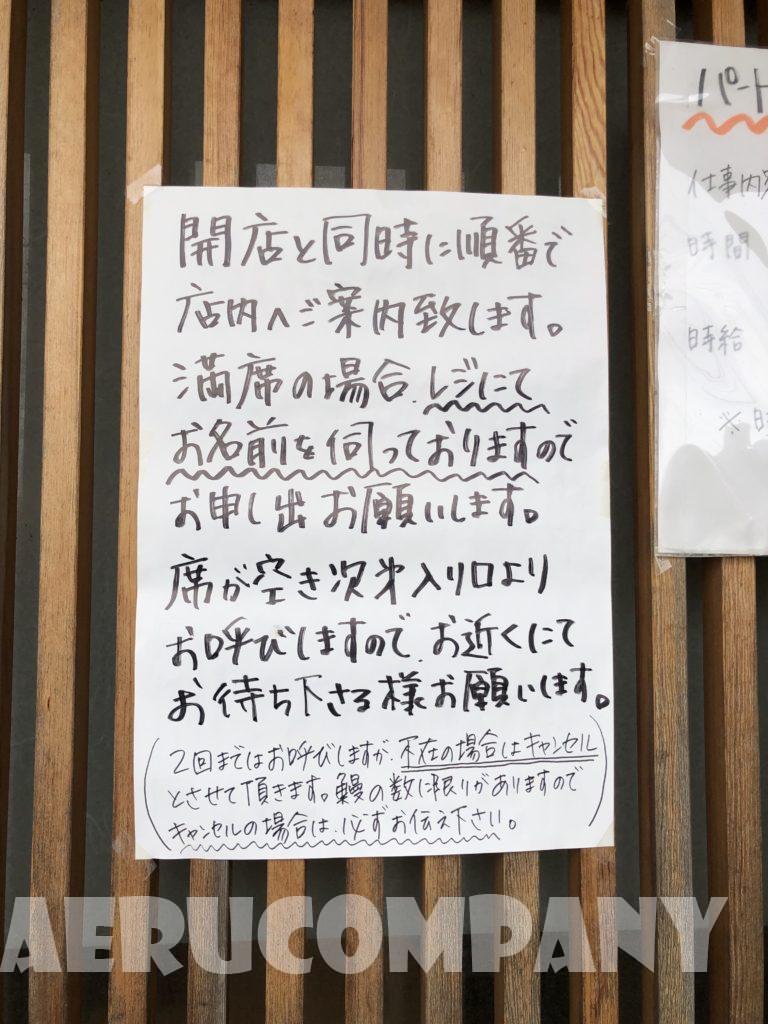 開店と同時に順番で
店内へご案内致します。
満席の場合、レジにて
お名前を伺っておりますので
お申し出お願いします。
席が空き次第入り口より
お呼びしますので、お近くにて
お待ち下さる様お願いします。
(2回まではお呼びしますが、不在の場合はキャンセル
とさせて頂きます。鰻の数に限りがありますので
キャンセルの場合は、必ずお伝え下さい。)
パート
仕事内容
時間
時給
※時
AERUCOMPANY